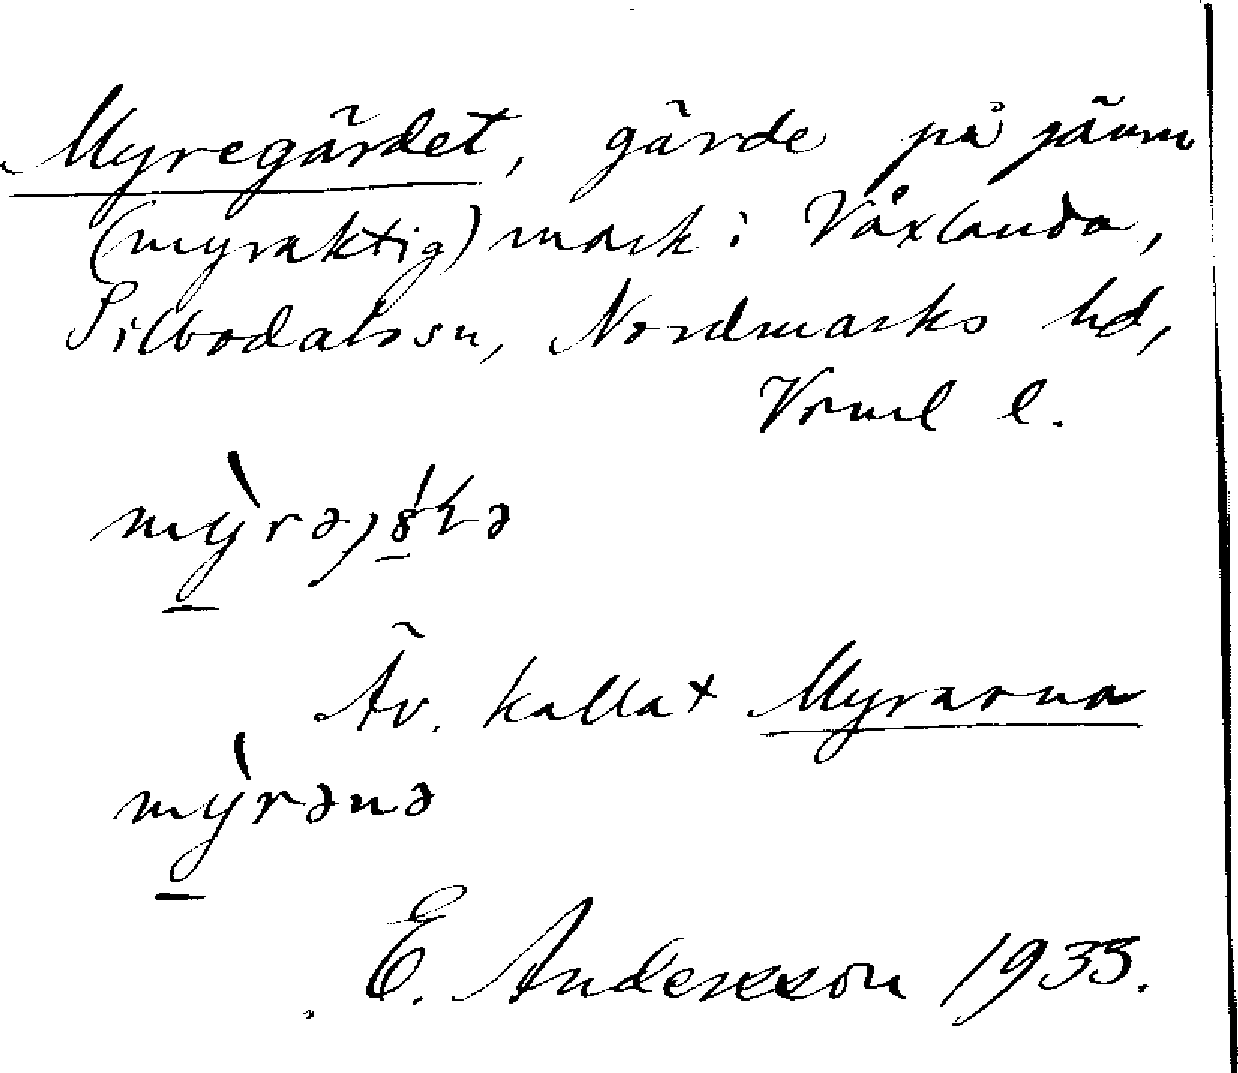 Myregärdet, gärde på jämn
(myraktig) mark i Våxlanda,
Silbodalssn, Nordmarks hd,
Vrml l.
Äv. kallat Myrarna
mỳrənə
E. Andersson 1933.